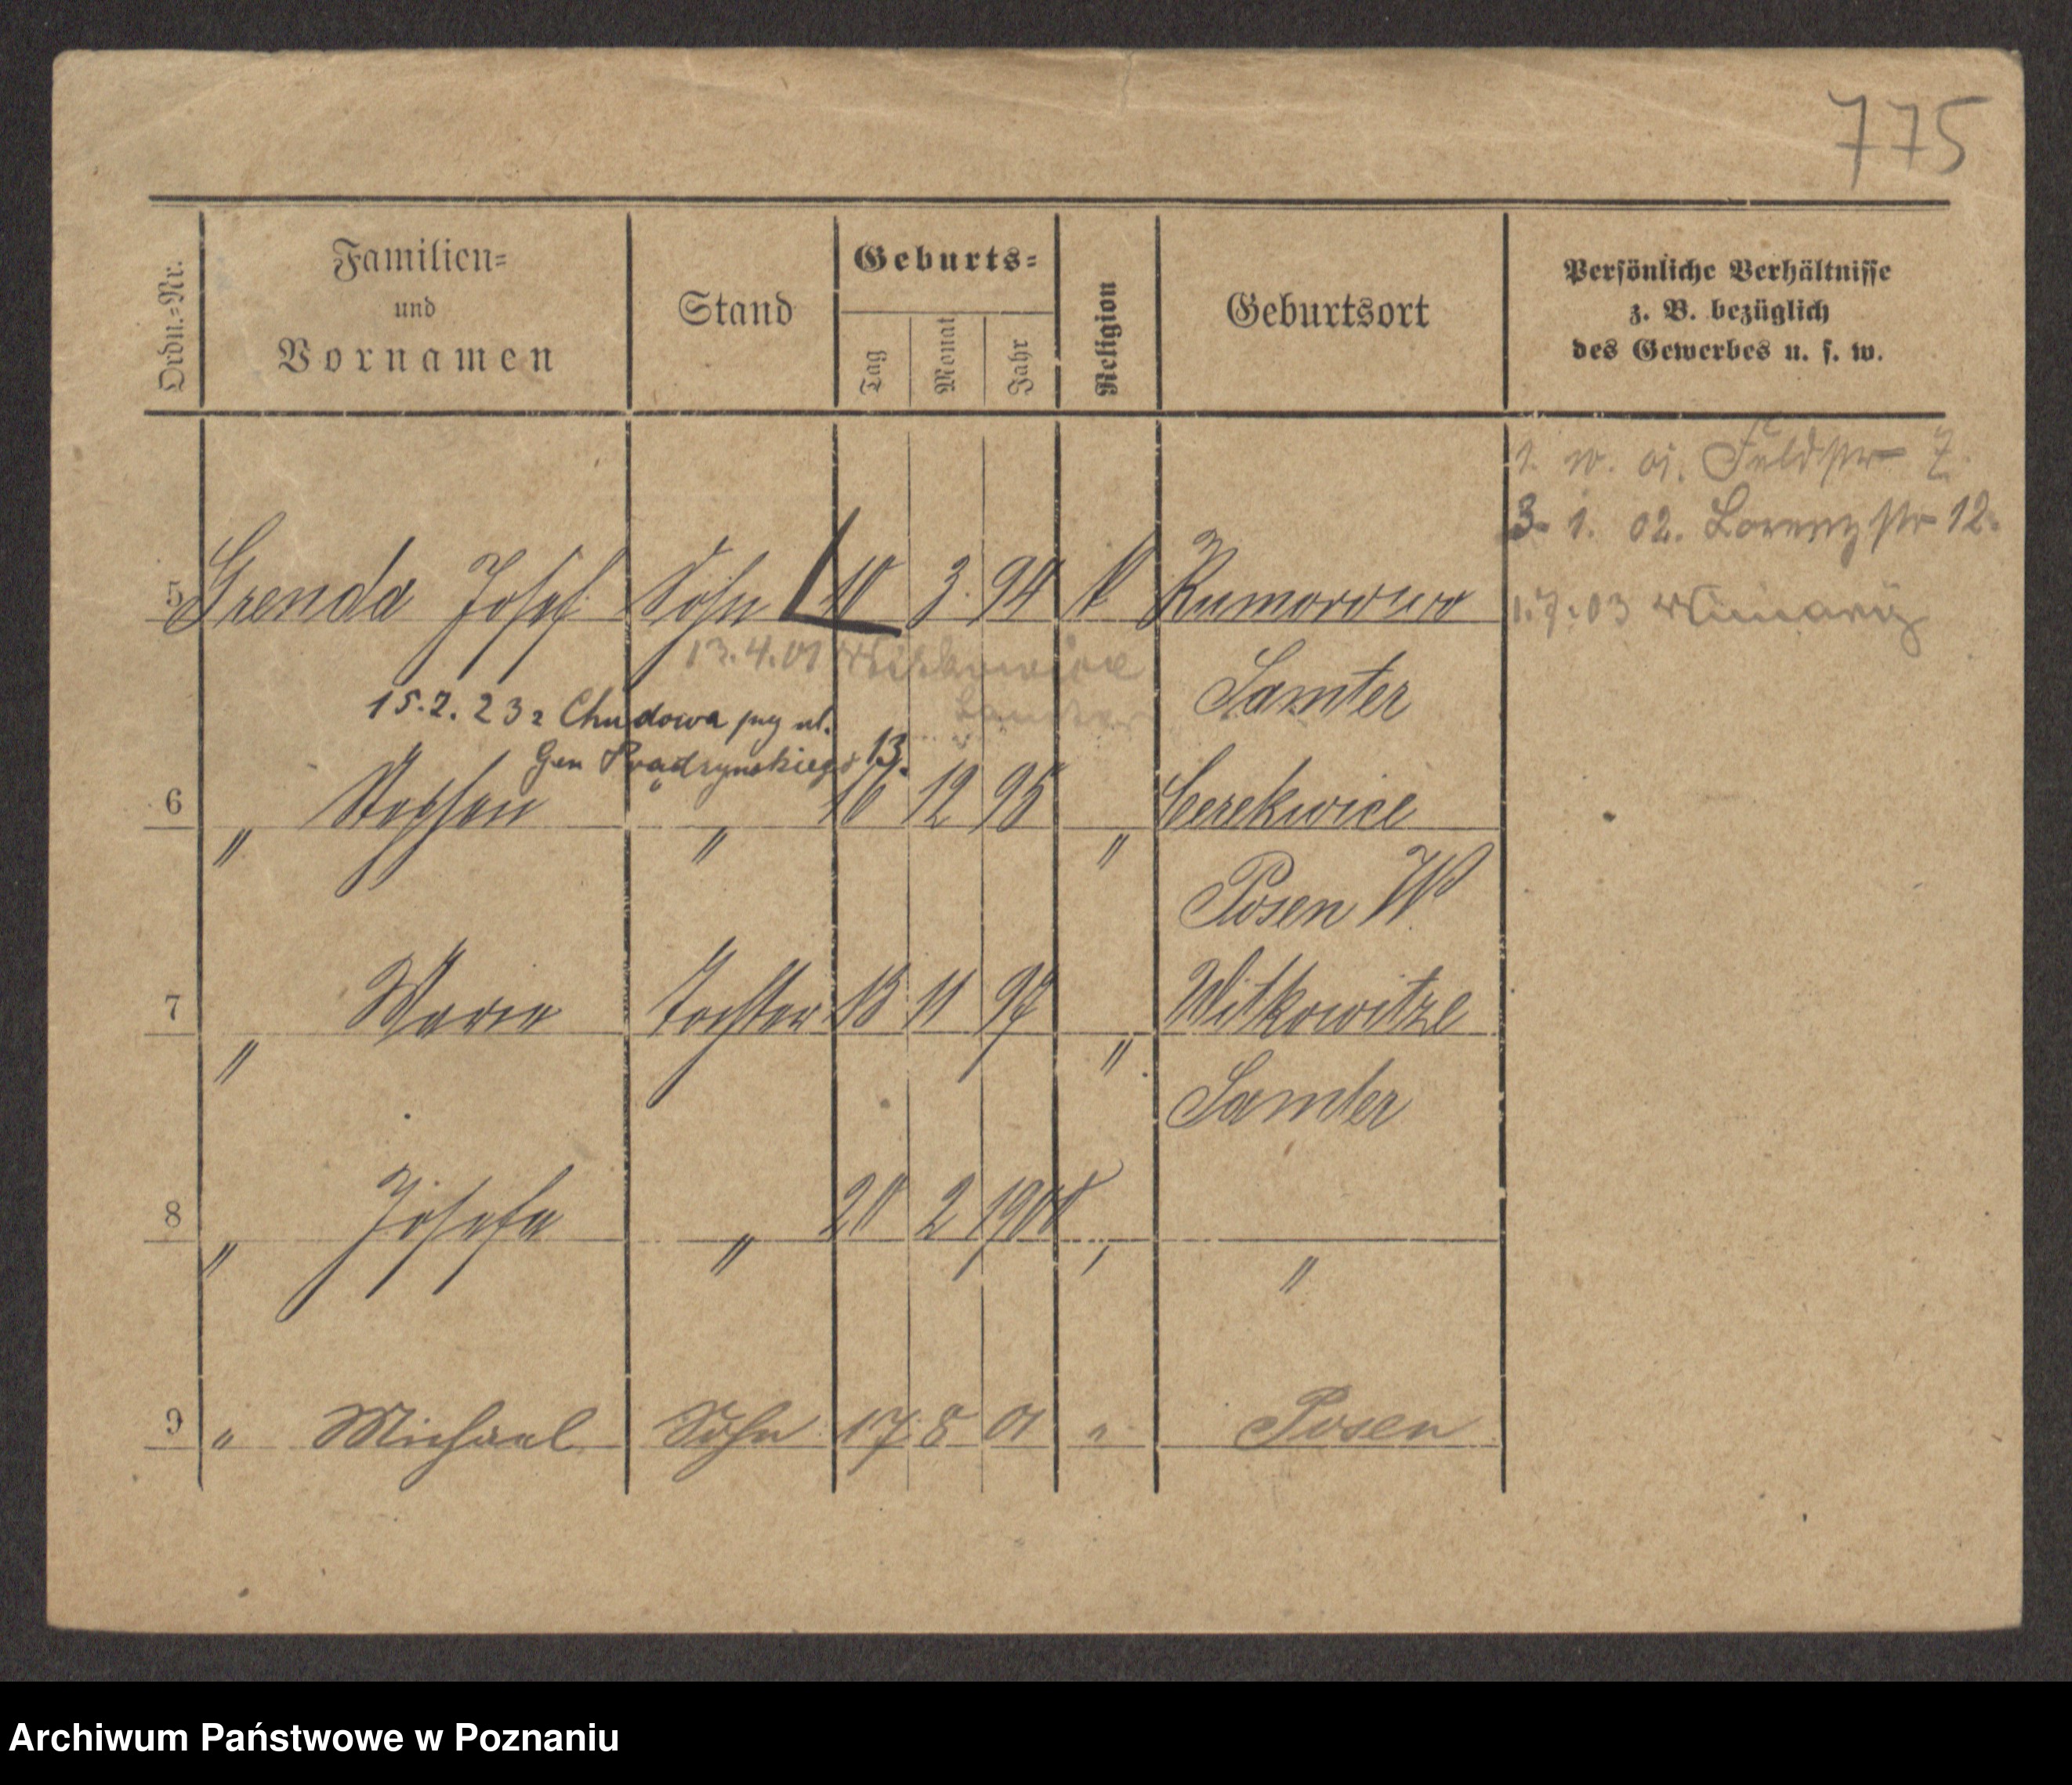 775
Ordn.=Nr.
Familien=
und
Vornamen
Stand
Geburts=
Tag
Monat
Jahr
Religion
Geburtsort
Persönliche Verhältnisse
z. B. bezüglich
des Gewerbes u. s. w.
1. 10. 01. Feldstr 7.
3. 1. 02. Lorenzstr 12.
5 Grenda Josef Sohn 10 3. 94 k Rumorowo
1.7.03
13.4.01
Samter
15.2.23 z Chudowa przy ul.
Gen Prądzynskiego 13.
6 " Stephan " 16 12 95 " Cerekwice
Posen W
7 " Marie Tochter 13 11 97 " Witkowitze
Samter
8 " Josefa " 20 2 1900 " "
9 " Michael Sohn 17 8 01 " Posen
Archiwum Państwowe w Poznaniu